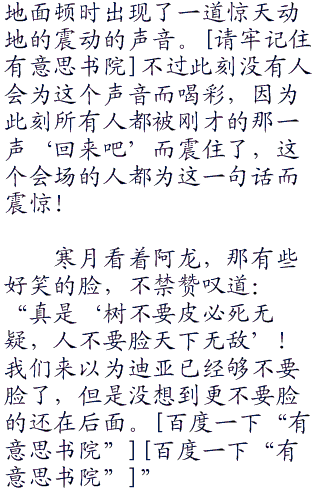 地面顿时出现了一道惊天动
地的震动的声音。[请牢记住
有意思书院]不过此刻没有人
会为这个声音而喝彩，因为
此刻所有人都被刚才的那一
声‘回来吧’而震住了，这
个会场的人都为这一句话而
震惊！
寒月看着阿龙，那有些
好笑的脸，不禁赞叹道：
“真是‘树不要皮必死无
疑，人不要脸天下无敌’！
我们来以为迪亚已经够不要
脸了，但是没想到更不要脸
的还在后面。[百度一下“有
意思书院”][百度一下“有
意思书院”]”